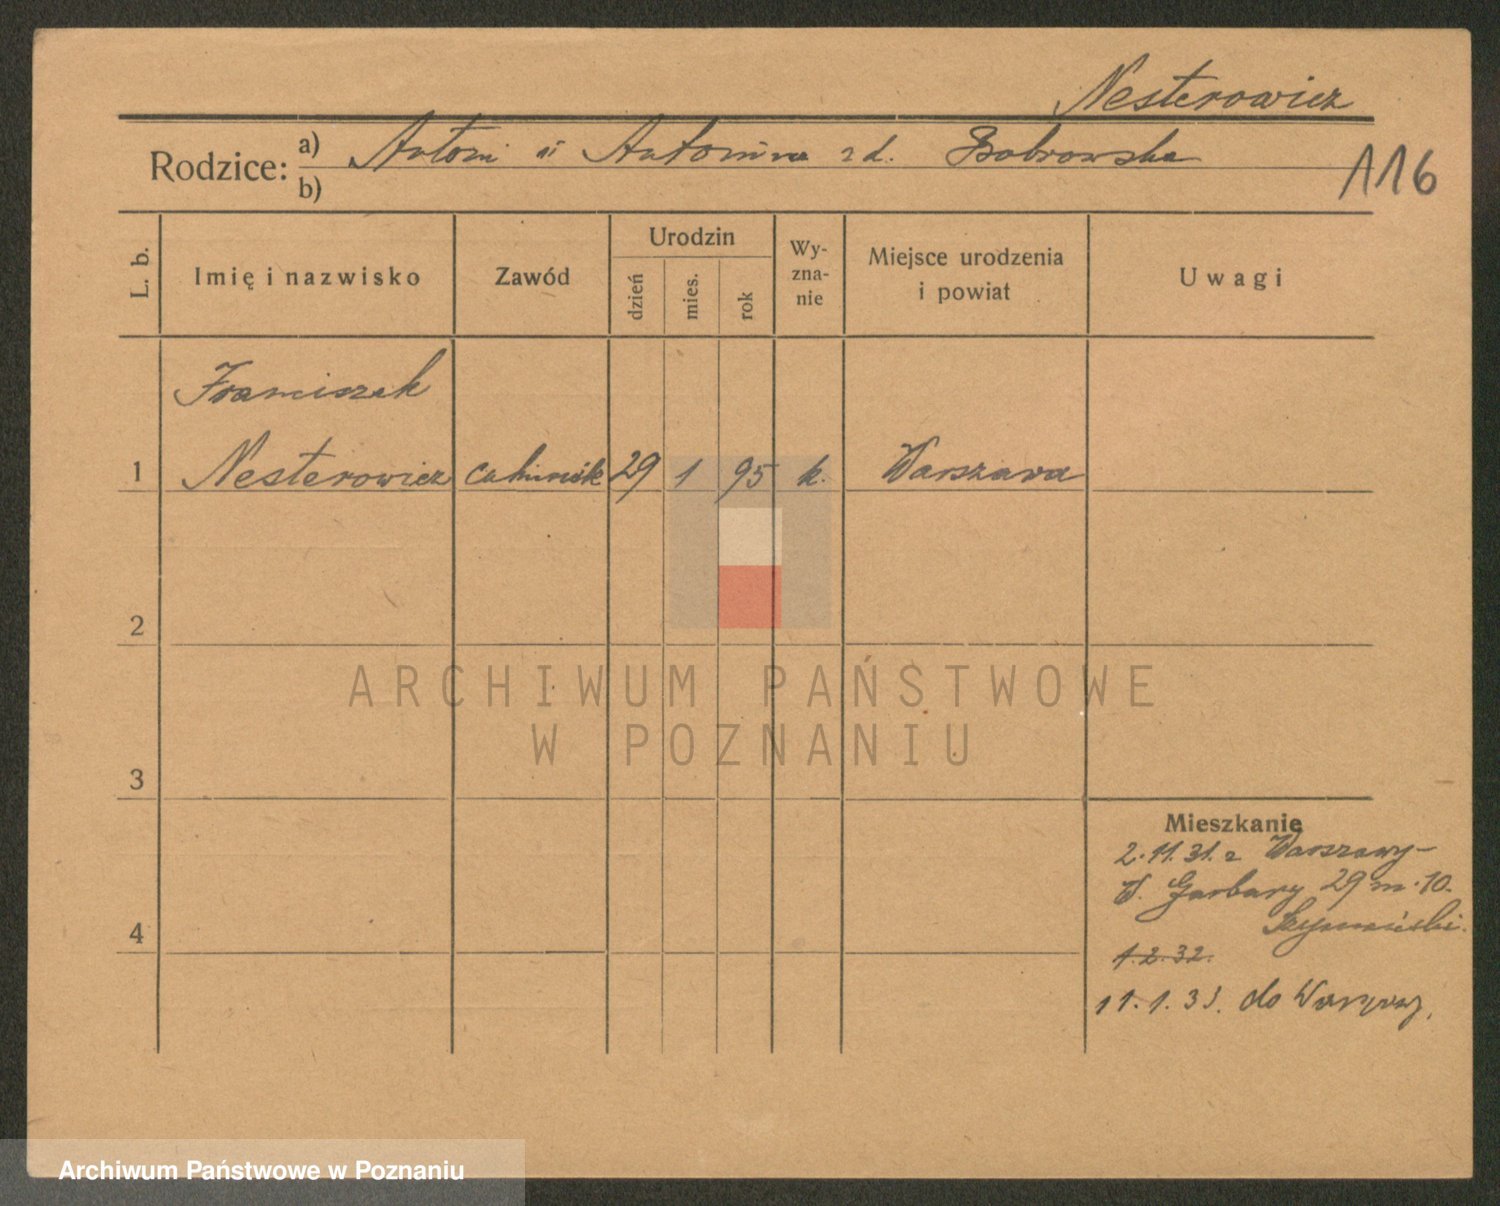 Nesterowicz
Rodzice: a) Antoni i Antonina z d. Bobrowska
b)
116
L. b. Imię i nazwisko Zawód Urodzin dzień mies. rok Wyznanie Miejsce urodzenia i powiat Uwagi
Franciszek
1 Nesterowicz 29 1 95 k. Warszawa
2
3
4
Mieszkanie
2.11.31. z Warszawy-
W. Garbary 29 m. 10.
Szymański.
1.2.32.
11.1.33. do Warszawy.
ARCHIWUM PAŃSTWOWE
W POZNANIU
Archiwum Państwowe w Poznaniu